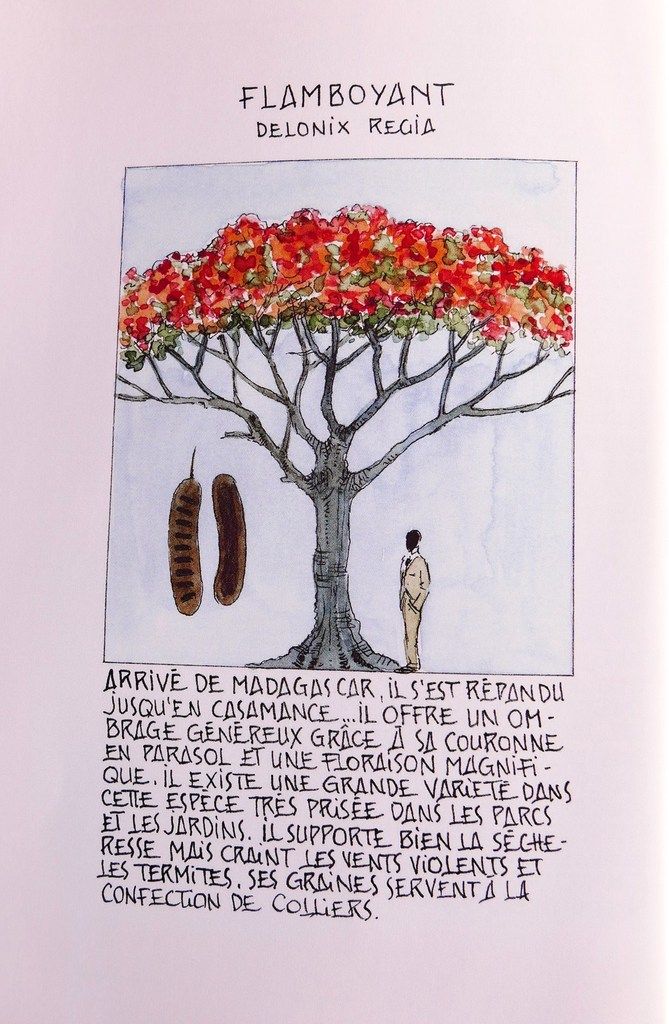 FLAMBOYANT
DELONIX REGIA
ARRIVÉ DE MADAGASCAR, IL S'EST RÉPANDU
JUSQU'EN CASAMANCE... IL OFFRE UN OM-
BRAGE GÉNÉREUX GRÂCE À SA COURONNE
EN PARASOL ET UNE FLORAISON MAGNIFI-
QUE. IL EXISTE UNE GRANDE VARIÉTÉ DANS
CETTE ESPÈCE TRÈS PRISÉE DANS LES PARCS
ET LES JARDINS. IL SUPPORTE BIEN LA SÉCHE-
RESSE MAIS CRAINT LES VENTS VIOLENTS ET
LES TERMITES. SES GRAINES SERVENT À LA
CONFECTION DE COLLIERS.